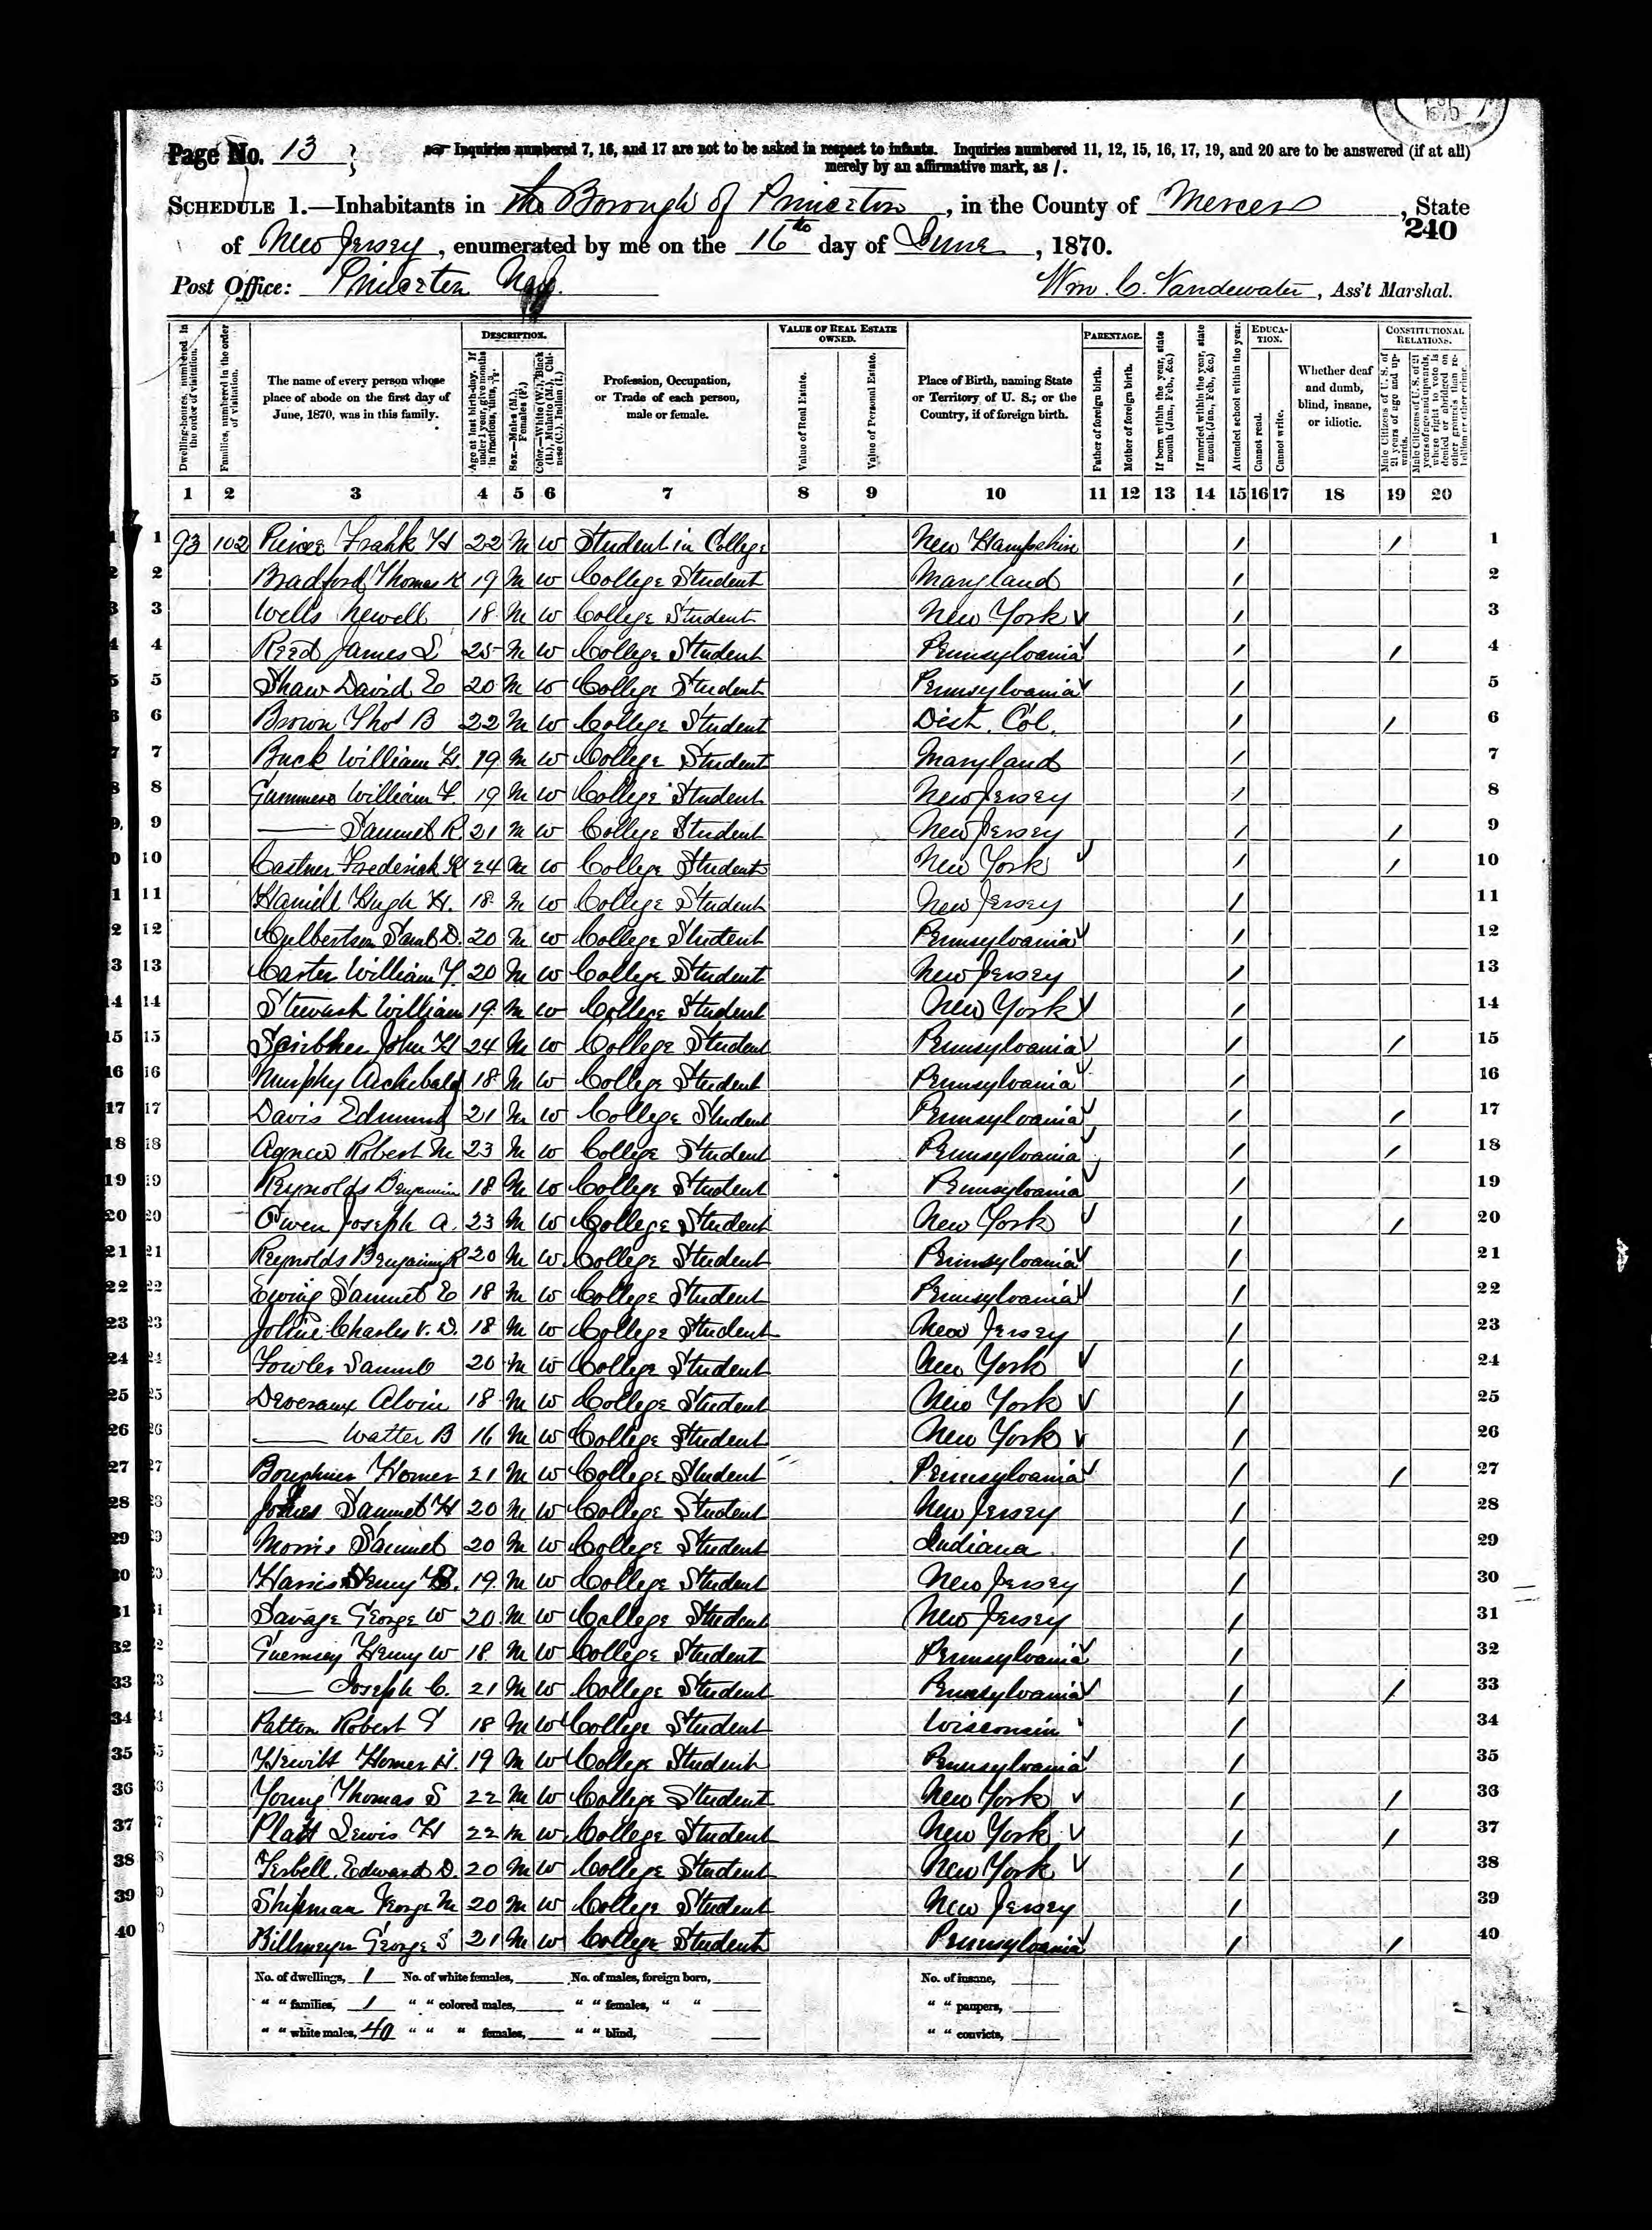 Page No. 13
Inquiries numbered 7, 16, and 17 are not to be asked in respect to infants. Inquiries numbered 11, 12, 15, 16, 17, 19, and 20 are to be answered (if at all)
merely by an affirmative mark, as /.
SCHEDULE 1.—Inhabitants in the Borough of Princeton, in the County of Mercer, State
240
of New Jersey, enumerated by me on the 16th day of June, 1870.
Post Office: Princeton
Wm. C. Vandewater, Ass't Marshal.
Dwelling-houses, numbered in the order of visitation.
Families, numbered in the order of visitation.
The name of every person whose place of abode on the first day of June, 1870, was in this family.
DESCRIPTION.
Age at last birth-day. If under 1 year, give months in fractions, thus, 3/12.
Sex.—Males (M.), Females (F.)
Color.—White (W.), Black (B.), Mulatto (M.), Chinese (C.), Indian (I.)
Profession, Occupation, or Trade of each person, male or female.
VALUE OF REAL ESTATE OWNED.
Value of Real Estate.
Value of Personal Estate.
Place of Birth, naming State or Territory of U. S.; or the Country, if of foreign birth.
PARENTAGE.
Father of foreign birth.
Mother of foreign birth.
If born within the year, state month (Jan., Feb., &c.)
If married within the year, state month (Jan., Feb., &c.)
Attended school within the year.
EDUCATION.
Cannot read.
Cannot write.
Whether deaf and dumb, blind, insane, or idiotic.
CONSTITUTIONAL RELATIONS.
Male Citizens of U. S. of 21 years of age and upwards.
Male Citizens of U. S. of 21 years of age and upwards, where right to vote is denied or abridged on other grounds than rebellion or other crime.
1 2 3 4 5 6 7 8 9 10 11 12 13 14 15 16 17 18 19 20
1 93 102 Pierce Frank H 22 M W Student in College New Hampshire / / 1
2 Bradford Thomas K 19 M W College Student Maryland / 2
3 Wells Newell 18 M W College Student New York / 3
4 Reed James L 25 M W College Student Pennsylvania / / 4
5 Shaw David E 20 M W College Student Pennsylvania / 5
6 Brown Thos B 22 M W College Student Dist. Col. / / 6
7 Buck William H. 19 M W College Student Maryland / 7
8 Gummere William F. 19 M W College Student New Jersey / 8
9 —— Samuel R. 21 M W College Student New Jersey / / 9
10 Castner Frederick 24 M W College Student New York / / 10
11 Hamill Hugh H. 18 M W College Student New Jersey / 11
12 Culbertson Saml D. 20 M W College Student Pennsylvania / 12
13 Carter William T. 20 M W College Student New Jersey / 13
14 Stewart William 19 M W College Student New York / 14
15 Scribner John H 24 M W College Student Pennsylvania / / 15
16 Murphy Archibald 18 M W College Student Pennsylvania / 16
17 Davis Edmund 21 M W College Student Pennsylvania / / 17
18 Agnew Robert M 23 M W College Student Pennsylvania / / 18
19 Reynolds Benjamin 18 M W College Student Pennsylvania / 19
20 Owen Joseph A. 23 M W College Student New York / / 20
21 Reynolds Benjamin R 20 M W College Student Pennsylvania / 21
22 Ewing Samuel E 18 M W College Student Pennsylvania / 22
23 Joline Charles V. D. 18 M W College Student New Jersey / 23
24 Fowler Samuel 20 M W College Student New York / 24
25 Deveraux Alvin 18 M W College Student New York / 25
26 —— Walter B 16 M W College Student New York / 26
27 Homer 21 M W College Student Pennsylvania / / 27
28 Samuel H 20 M W College Student New Jersey / 28
29 Morris Samuel 20 M W College Student Indiana / 29
30 Harris Henry 19 M W College Student New Jersey / 30
31 Savage George W 20 M W College Student New Jersey / 31
32 Guernsey Henry W 18 M W College Student Pennsylvania / 32
33 —— Joseph C. 21 M W College Student Pennsylvania / / 33
34 Patton Robert 18 M W College Student Wisconsin / 34
35 Hewitt Homer H. 19 M W College Student Pennsylvania / 35
36 Young Thomas S 22 M W College Student New York / / 36
37 Platt Lewis H 22 M W College Student New York / / 37
38 Terbell Edward D. 20 M W College Student New York / 38
39 Shipman George M 20 M W College Student New Jersey / 39
40 Billmeyer George S 21 M W College Student Pennsylvania / / 40
No. of dwellings, 1 No. of white females, No. of males, foreign born, No. of insane,
" " families, 1 " " colored males, " " females, " " " " paupers,
" " white males, 40 " " " females, " " blind, " " convicts,